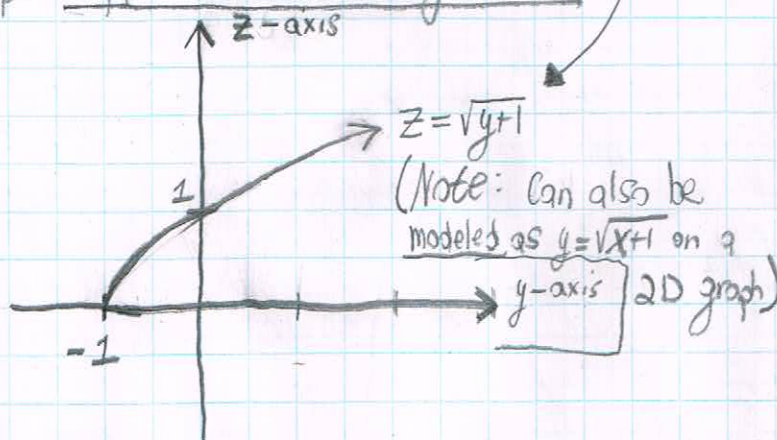 z-axis
z = √y+1
(Note: Can also be
modeled as y = √x+1 on a
2D graph)
y-axis
1
-1